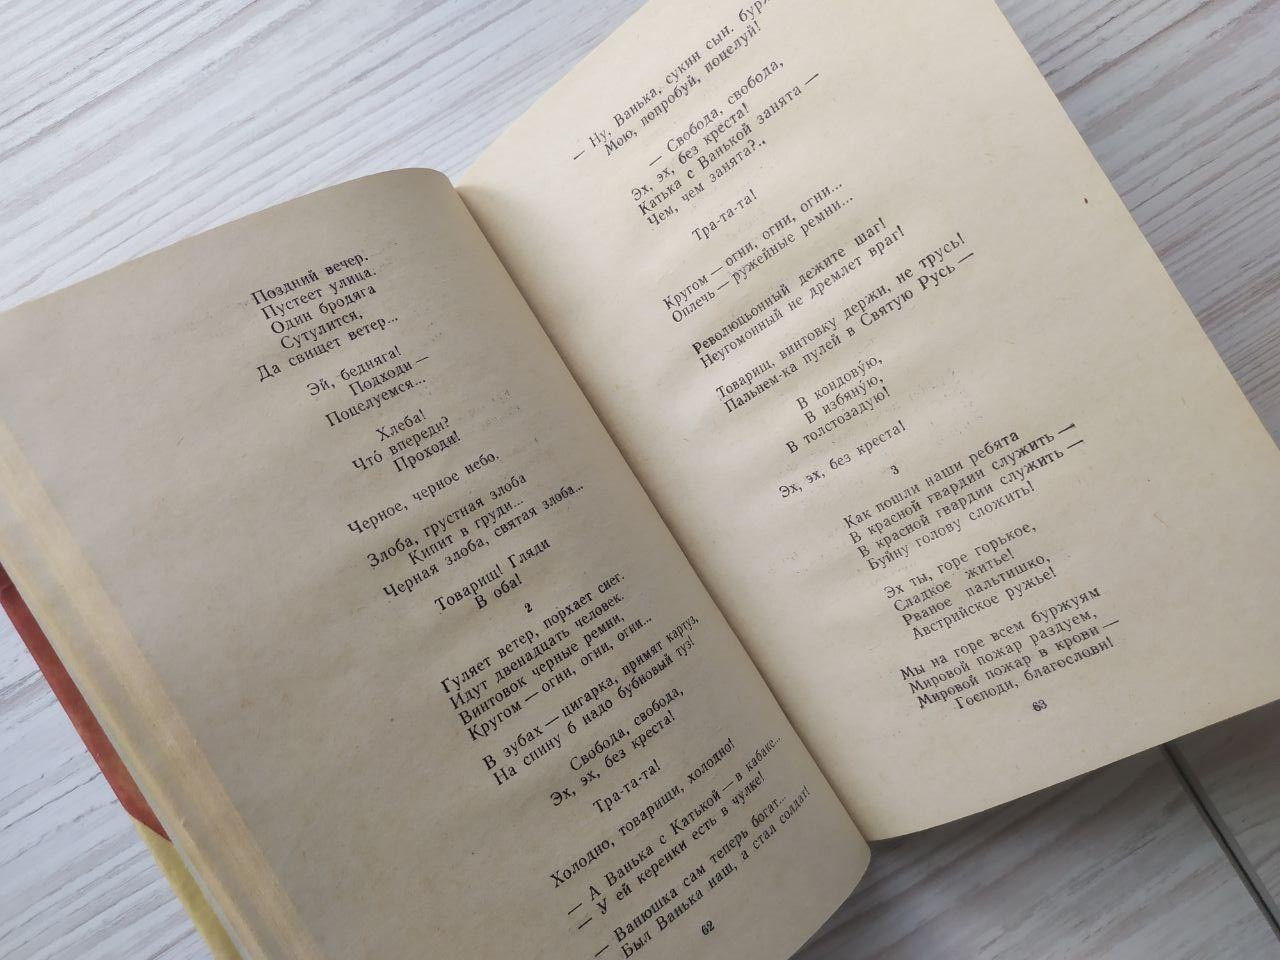 Поздний вечер.
Пустеет улица.
Один бродяга
Сутулится,
Да свищет ветер...
Эй, бедняга!
Подходи —
Поцелуемся...
Хлеба!
Что́ впереди?
Проходи!
Черное, черное небо.
Злоба, грустная злоба
Кипит в груди...
Черная злоба, святая злоба...
Товарищ! Гляди
В оба!
2
Гуляет ветер, порхает снег.
Идут двенадцать человек.
Винтовок черные ремни,
Кругом — огни, огни, огни...
В зубах — цигарка, примят картуз,
На спину б надо бубновый туз!
Свобода, свобода,
Эх, эх, без креста!
Тра-та-та!
Холодно, товарищи, холодно!
— А Ванька с Катькой — в кабаке...
— У ей керенки есть в чулке!
— Ванюшка сам теперь богат...
— Был Ванька наш, а стал солдат!
62
— Ну, Ванька, сукин сын,
Мою, попробуй, поцелуй!
— Свобода, свобода,
Эх, эх, без креста!
Катька с Ванькой занята —
Чем, чем занята?..
Тра-та-та!
Кругом — огни, огни, огни...
Оплечь — ружейные ремни...
Революцьонный держите шаг!
Неугомонный не дремлет враг!
Товарищ, винтовку держи, не трусь!
Пальнем-ка пулей в Святую Русь —
В кондову́ю,
В избяну́ю,
В толстозадую!
Эх, эх, без креста!
3
Как пошли наши ребята
В красной гвардии служить —
В красной гвардии служить —
Буйну голову сложить!
Эх ты, горе горькое,
Сладкое житье!
Рваное пальтишко,
Австрийское ружье!
Мы на горе всем буржуям
Мировой пожар раздуем,
Мировой пожар в крови —
Господи, благослови!
63